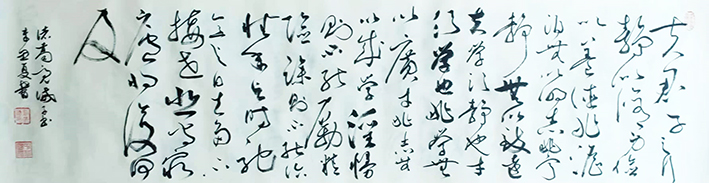 夫君子之行
静以修身俭
以养德非澹
泊无以明志非宁
静無以致远
夫学须静也才
须学也非学無
以廣才非志無
以成学淫慢
则不能励精
险躁则不能治
性年与时驰
意与日去多不
接世悲守穷
庐将復何
及
诸葛亮诫子书